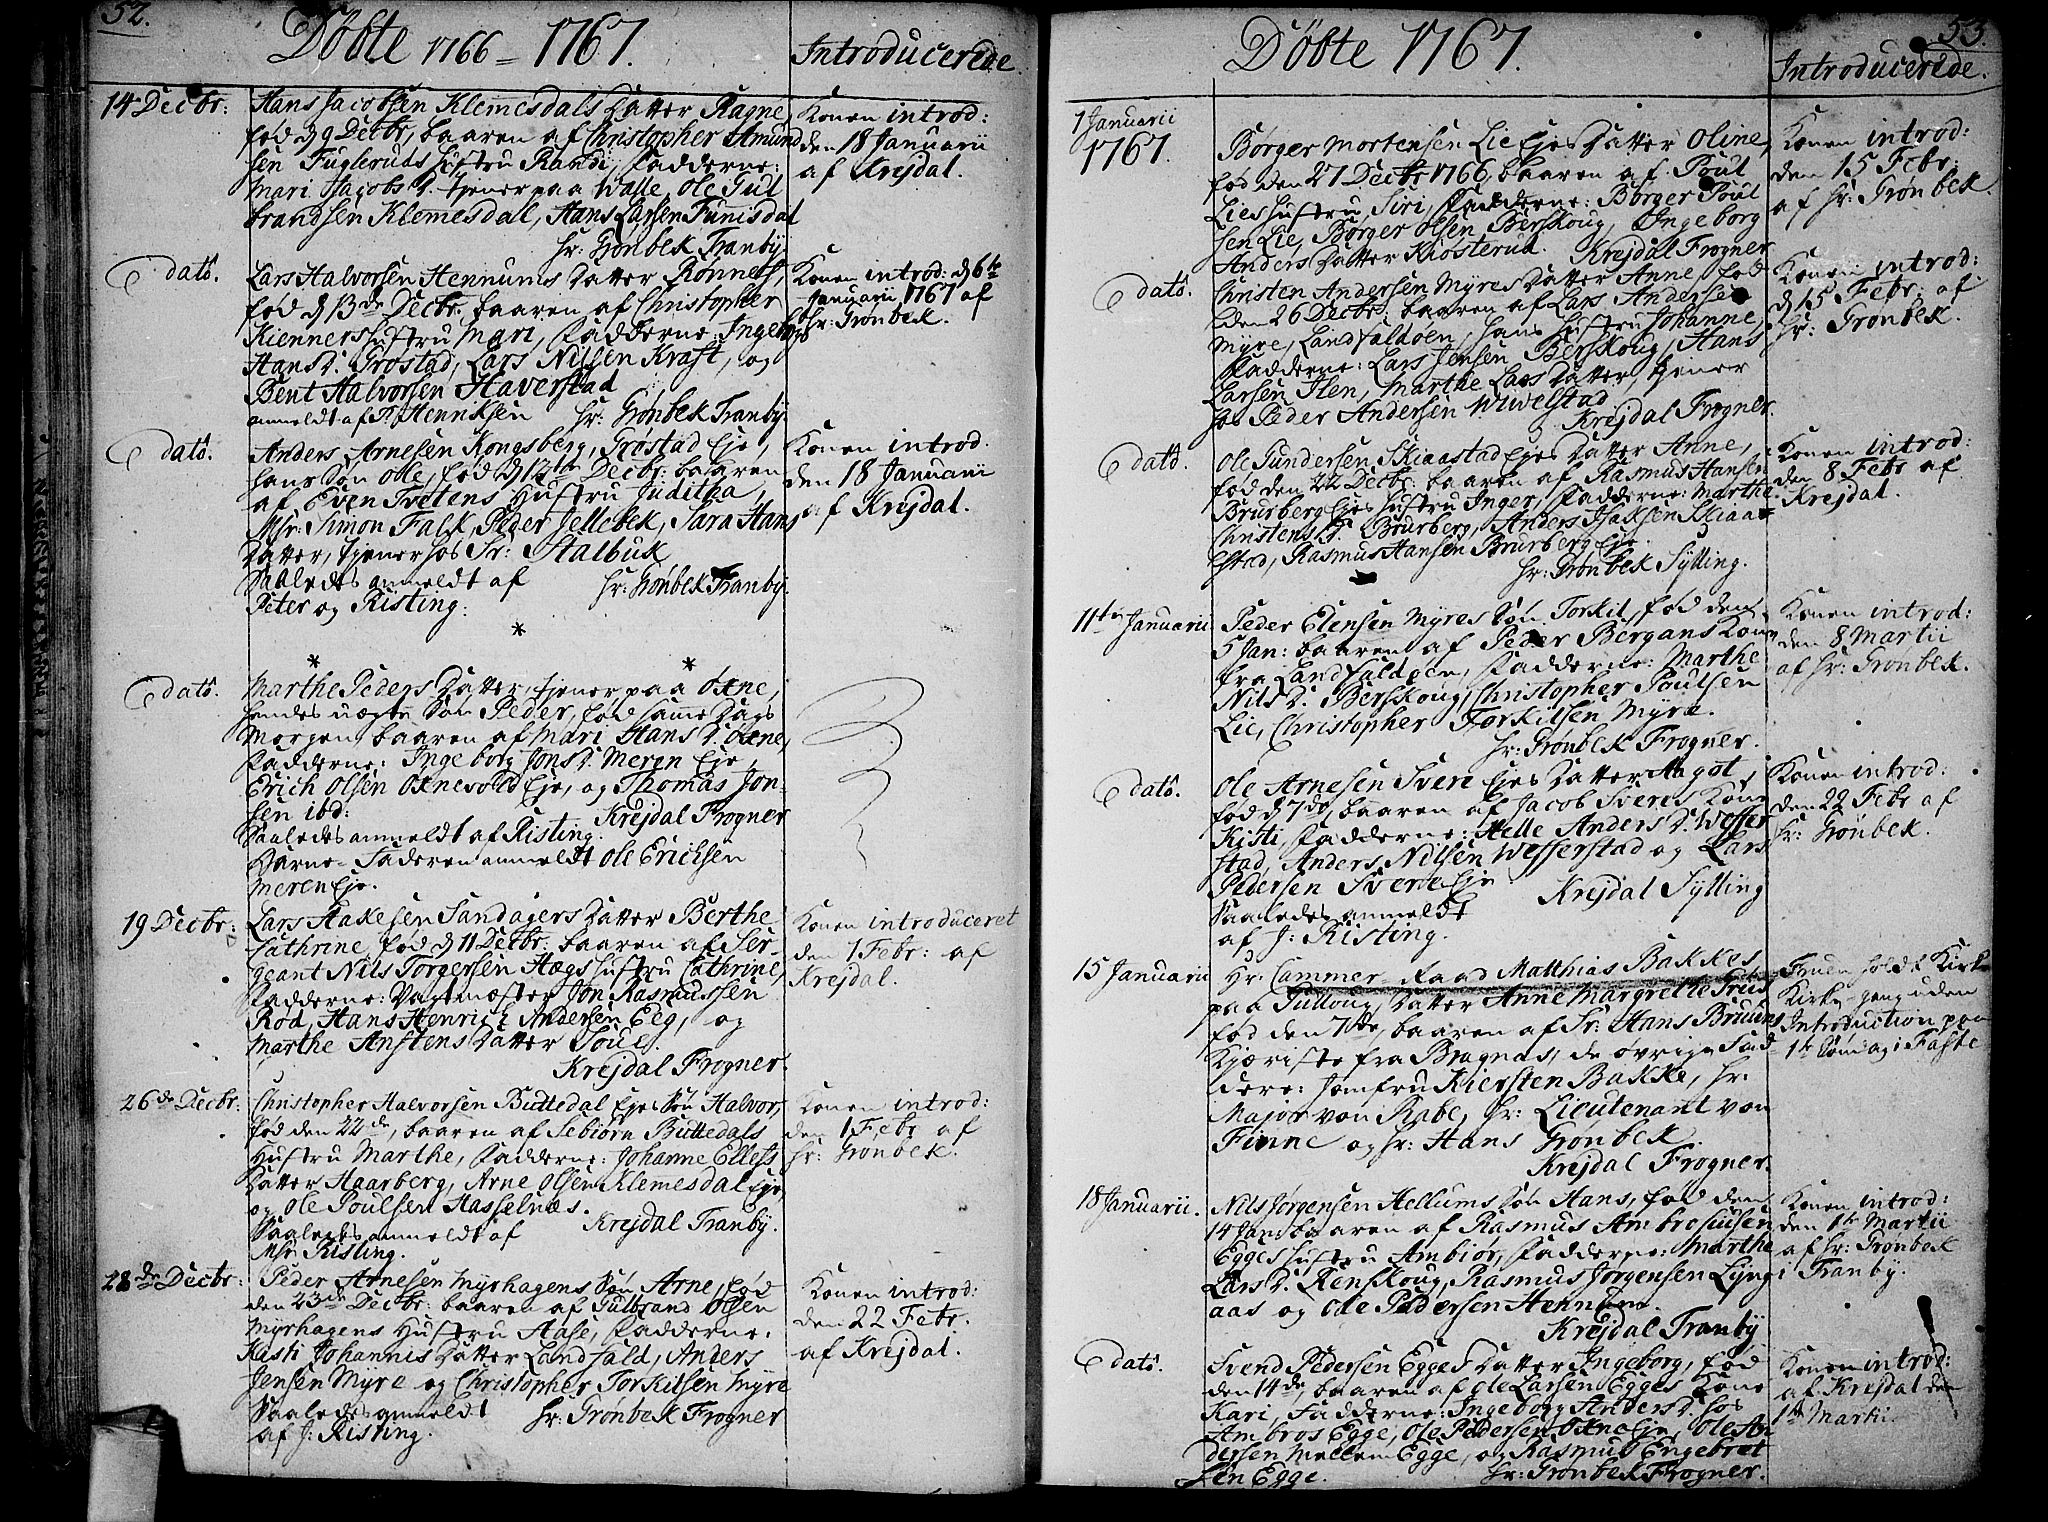 52.
Döbte 1766 = 1767.
Introducerede.
14 Decbr:
Hans Jacobsen Klemesdals Datter Ragne,
föd d 9 Decbr, baaren af Christopher Amund
sen Fugleruds Hustru Randi, Fadderne:
Mari Jacobs D. tjener paa Walle, Ole Gul
brandsen Klemesdal, Hans Larsen Funisdal
hr: Grönbek Tranby.
Konen introd:
den 18 Januarii
af Krejdal.
dato.
Lars Halvorsen Hennums Datter Rönnest,
föd d 13de Decbr. baaren af Christopher
Kienners Hustru Mari, Fadderne: Ingeborg
Hans D. Gröstad, Lars Nilsen Kraft, og
Bent Halvorsen Haverstad
anmeldt af P. Henriksen hr: Grönbek Tranby
Konen introd: d 6te
Januarii 1767 af
hr: Grönbek.
dato.
Anders Arnesen Kongsberg, Gröstad Eje,
hans Sön Ole, föd d 12te Decbr: baaren
af Even Tvetens Hustru Juditha,
Mhr: Simon Falk, Peder Jellebek, Sara Hans
Datter, tjener hos Sr: Stalbuk
Saaledes anmeldt af hr: Grönbek Tranby.
Peter og Risting.
Konen introd.
den 18 Januarii
af Krejdal.
*
* *
dato.
Marthe Peders Datter, tjener paa Oxne,
hendes uægte Sön Peder, föd samme Dags
Morgen, baaren af Mari Hans D. Oxne,
Fadderne: Ingeborg Jons D. Meren Eje,
Erich Olsen Oxnevold Eje, og Thomas Jon-
sen ibd: Krejdal Frogner
Saaledes anmeldt af Risting.
Barne-Faderen anmeldt Ole Erichsen
Meren Eje.
19 Decbr:
Lars Aakesen Sandagers Datter Berthe
Cathrine, föd d 11 Decbr: baaren af Ser-
geant Nils Torgersen Hægs Hustru Cathrine,
Fadderne: Vagtmester Jon Rasmussen
Röd, Hans Henrich Andersen Eeg, og
Marthe Anstens Datter Soues.
Krejdal Frogner.
Konen introduceret
den 1 Febr: af
Krejdal.
26de Decbr.
Christopher Halvorsen Buttedal Ejes Sön Halvor,
föd den 22de, baaren af Sebiörn Buttedals
Hustru Marthe, Fadderne: Johanne Ellefs
Datter Haarberg, Arne Olsen Klemesdal Eje,
og Ole Poulsen Hasselnæs.
Saaledes anmeldt af Krejdal Tranby.
Mhr Risting.
Konen introd:
den 1 Febr af
hr: Grönbek.
28de Decbr:
Peder Arnesen Myrhagens Sön Arne, föd
den 23de Decbr: baaren af Gulbrand Olsen
Myrhagens Hustru Aase, Fadderne:
Kisti Johannis Datter Landfald, Anders
Jensen Myre og Christopher Torkilsen Myre
Saaledes anmeldt hr: Grönbek Frogner
af J: Risting.
Konen introd:
den 22 Febr.
af Krejdal.
53.
Döbte 1767.
Introducerede.
1 Januarii
1767.
Börger Mortensen Lie Ejes Datter Oline,
föd den 27 Decbr 1766, baaren af Poul
Lies Hustru, Siri, Fadderne: Börger Poul
sen Lie, Börger Olsen Berskoug, Ingeborg
Anders Datter Klosterud. Krejdal Frogner
Konen introd:
den 15 Febr:
af hr: Grönbek.
dato.
Christen Andersen Myres Datter Anne, föd
den 26 Decbr: baaren af Lars Andersen
Myre, Landfaldöen, hans Hustru Johanne,
Fadderne: Lars Jensen Berskoug, Hans
Larsen Ilen, Marthe Lars Datter, tjener
hos Peder Andersen Wivelstad
Krejdal Frogner.
Konen introd:
d 15 Febr: af
hr: Grönbek.
dato.
Ole Gundersen Skiaastad Ejes Datter Anne,
föd den 22 Decbr: baaren af Rasmus Hansen
Brurberg Ejes Hustru Inger, Fadderne: Marthe
Christens D. Brurberg, Anders Isaksen Skiaa=
stad, Rasmus Hansen Brurberg Eje.
hr: Grönbek Sylling.
Konen introd:
den 8 Febr af
Krejdal.
11te Januarii
Peder Elensen Myres Sön Torkil, föd den
5 Jan: baaren af Peder Bergans Kone
fra Landfaldöen, Fadderne: Marthe
Nils D. Berskoug, Christopher Poulsen
Lie, Christopher Torkilsen Myre.
hr: Grönbek Frogner.
Konen introd:
den 8 Martii
af hr: Grönbek.
dato.
Ole Arnesen Svere Ejes Datter Angot,
föd d 7de, baaren af Jacob Sveres Kone
Kisti, Fadderne: Helle Anders D. Weffer
stad, Anders Nilsen Wefferstad og Lars
Pedersen Svere Eje.
Krejdal Sylling
Saaledes anmeldt
af J: Risting.
Konen introd:
den 22 Febr af
hr: Grönbek.
15 Januarii
Hr: Cammer Raad Matthias Bakkes
paa Gulloug, Datter Anne Margrethe Grus
föd den 7de, baaren af Sr: Hans Bruuns
Kjæriste fra Bragnæs, de övrige Fad-
dere: Jomfru Kiersten Bakke, Hr:
Major von Rabe, Hr: Lieutenant von
Finne og Hr: Hans Grönbek.
Krejdal Frogner.
Fruen holdt Kirke
Kirke-gang uden
Introduction paa
1te Söndag i Faste
18 Januarii.
Nils Jörgensen Hellums Sön Hans, föd den
14 Jan: baaren af Rasmus Ambrosiusen
Egges Hustru Ambior, Fadderne: Marthe
Lars D. Renskoug, Rasmus Jörgensen Lyng
aas og Ole Pedersen Hennum.
Krejdal Tranby
Konen introd:
den 1te Martii
af hr: Grönbek
i Tranby.
dato.
Svend Pedersen Egges Datter Ingeborg, föd
den 14de, baaren af Ole Larsen Egges Kone
Kari, Fadderne: Ingeborg Anders D. hos
Ambros Egge, Ole Pedersen Oxne Eje, Ole An
dersen Mellem Egge, og Rasmus Engebret
sen Egge. hr: Grönbek Frogner.
Konen introd:
af Krejdal den
1te Martii.